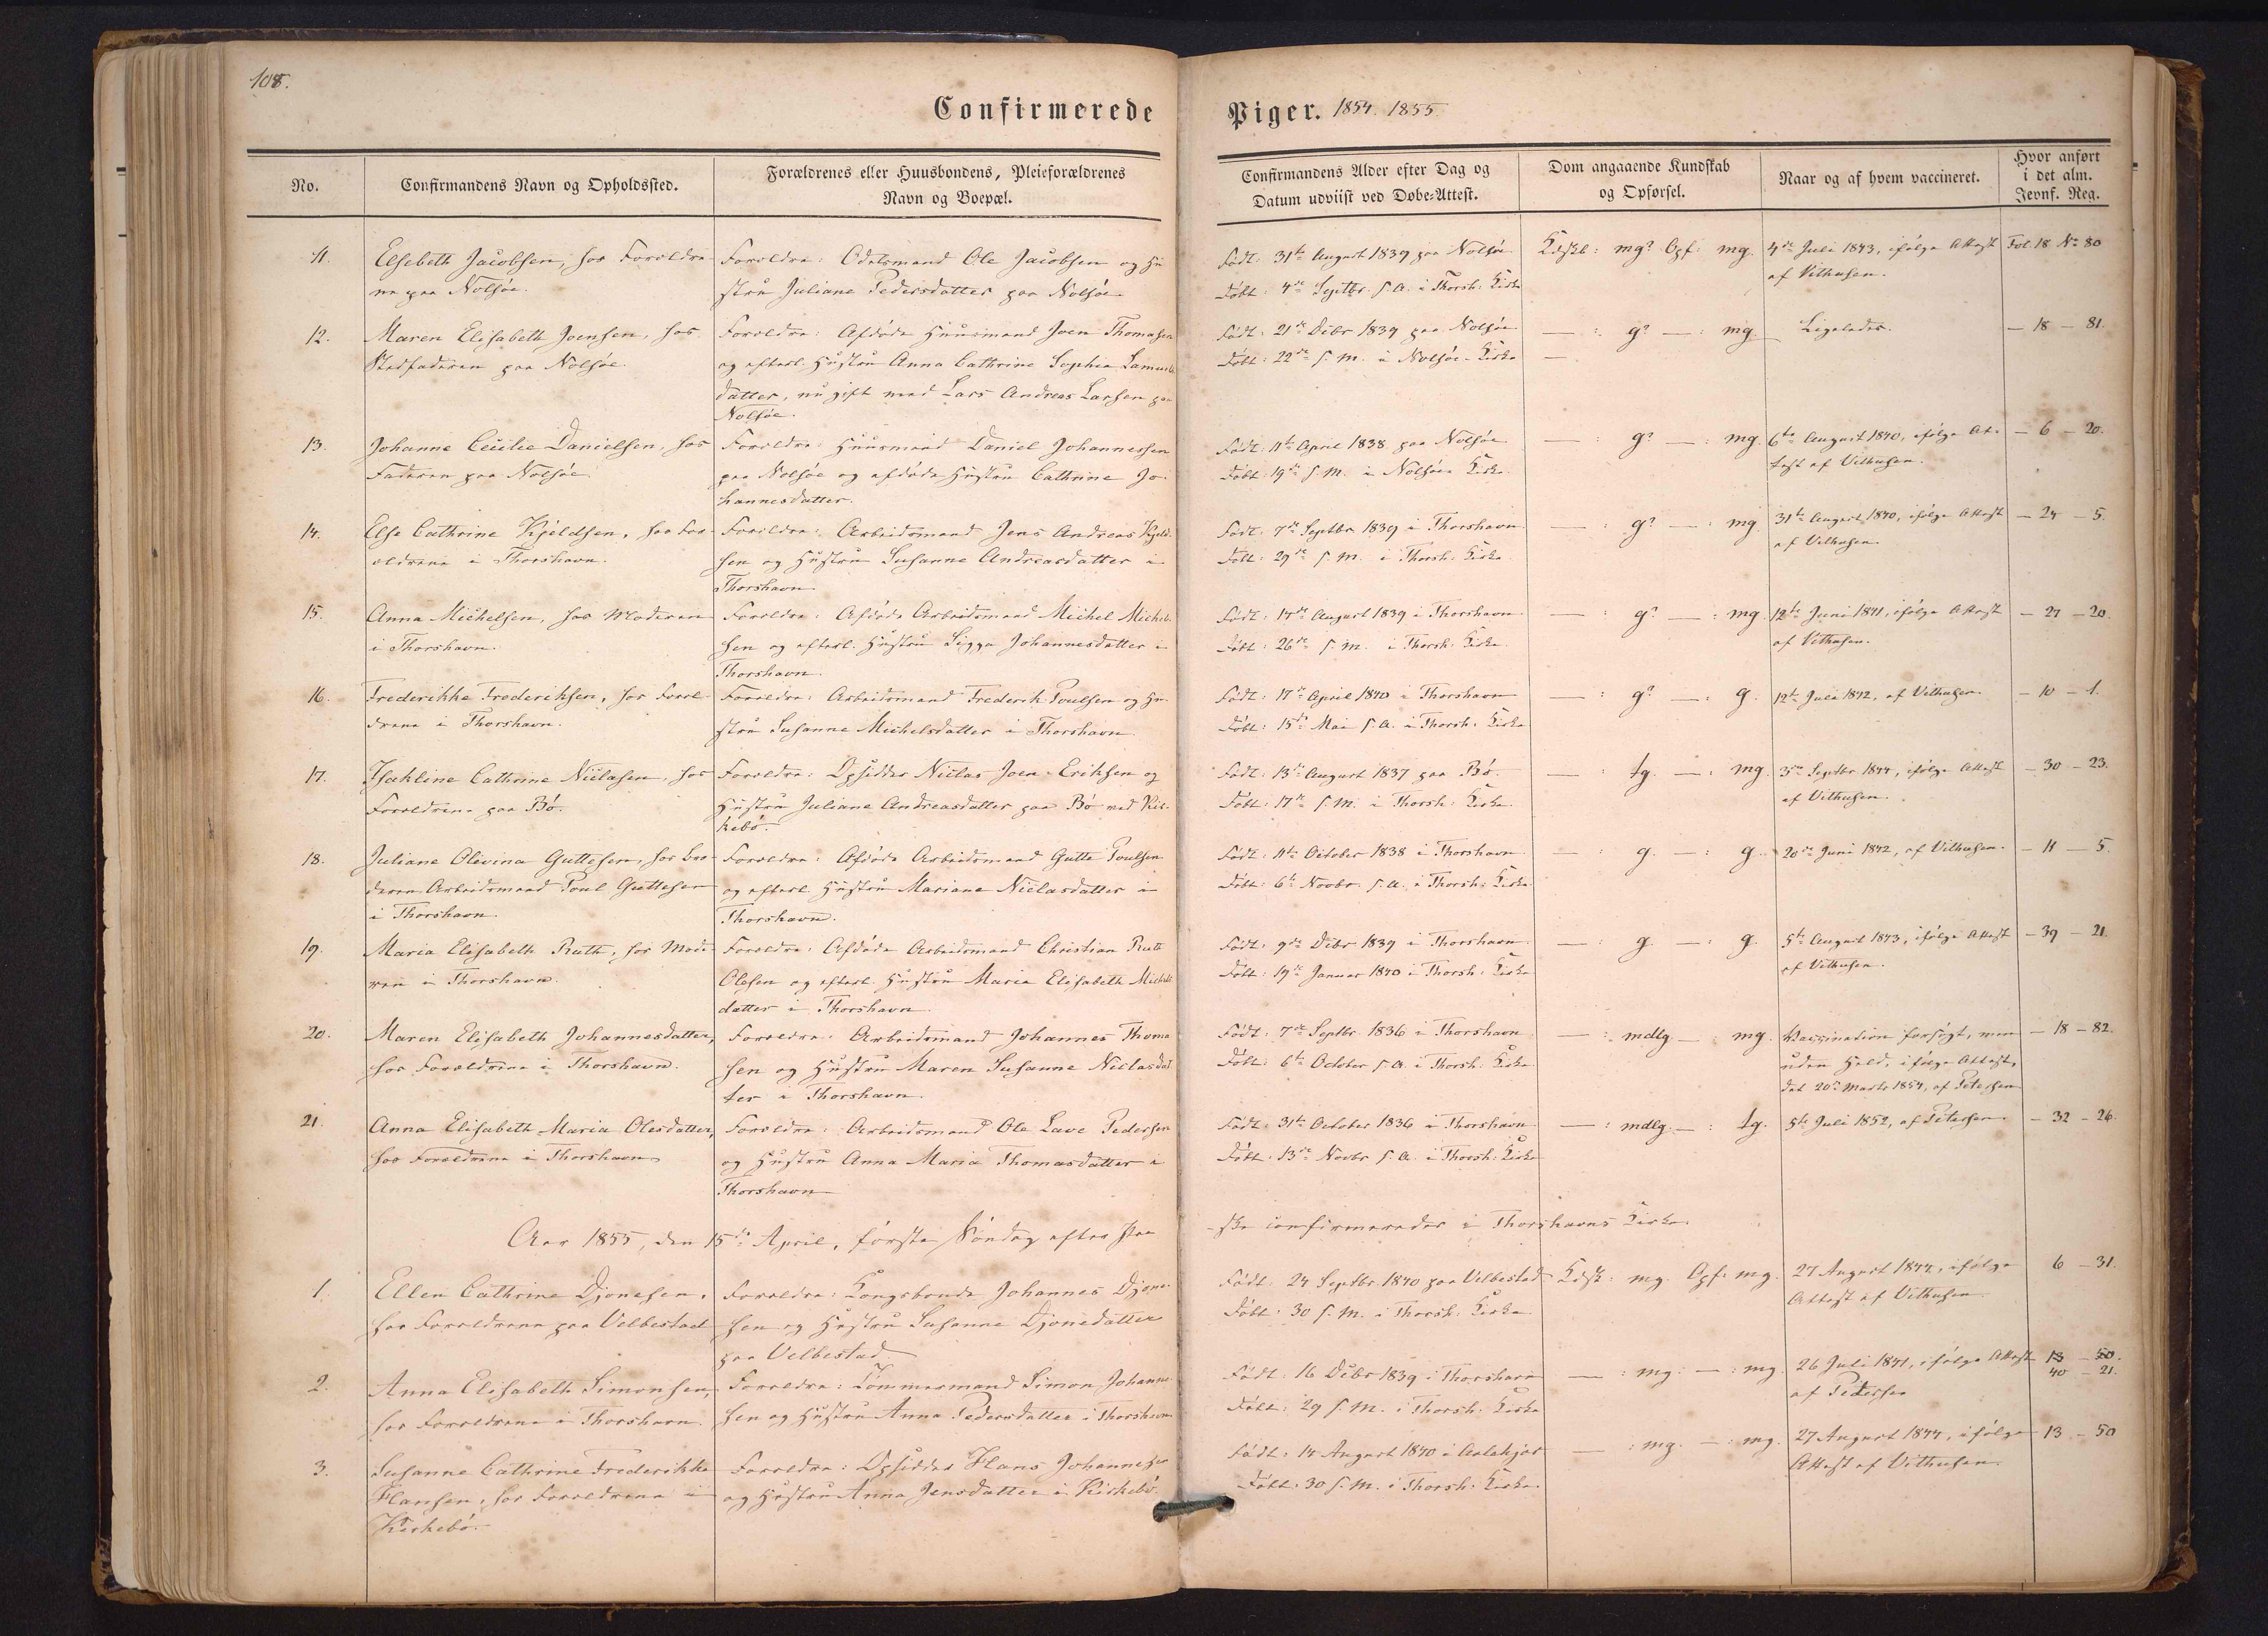 108.
Confirmerede
Piger. 1854. 1855.
No.
Confirmandens Navn og Opholdssted.
Forældrenes eller Huusbondens, Pleieforældrenes
Navn og Boepæl.
Confirmandens Alder efter Dag og
Datum udviist ved Døbe-Attest.
Dom angaaende Kundskab
og Opførsel.
Naar og af hvem vaccineret.
Hvor anført
i det alm.
Jevnf. Reg.
11.
Elsebeth Jacobsen, hos Forældre-
ne paa Nolsöe.
Forældre: Odelsmand Ole Jacobsen og Hu-
stru Juliane Pedersdatter paa Nolsöe
Født: 31te August 1839 paa Nolsöe
Døbt: 4de Septbr. s. A. i Thorsh: Kirke
Kdskb: mg? Opf: mg.
4de Juli 1843, ifølge Attest
af Vithusen.
Fol. 18 No 80
12.
Maren Elisabeth Joensen, hos
Stedfaderen paa Nolsöe.
Forældre: Afdøde Huusmand Joen Thomasen
og efterl. Hustru Anna Cathrine Sophie Samuels
datter, nu gift med Lars Andreas Larsen paa
Nolsöe.
Født: 21de Debr 1839 paa Nolsöe
Døbt: 22de s. M. i Nolsöe Kirke
— : g? — : mg
Ligeledes.
— 18 — 81.
13.
Johanne Cecilie Danielsen, hos
Faderen paa Nolsöe.
Forældre: Huusmand Daniel Johannessen
paa Nolsöe og afdøde Hustru Cathrine Jo-
hannesdatter.
Født: 11te April 1838 paa Nolsöe
Døbt: 19de s. M. i Nolsöe Kirke
— : g? — : mg.
6te August 1840, ifølge At-
test af Vithusen.
— 6 — 20.
14.
Else Cathrine Kjeldsen, hos For-
ældrene i Thorshavn.
Forældre: Arbeidsmand Jens Andreas Kjeld-
sen og Hustru Susanne Andreasdatter i
Thorshavn.
Født: 7de Septbr 1839 i Thorshavn
Døbt: 29de s. M. i Thorsh: Kirke
— : g? — : mg
31te August 1840, ifølge Attest
af Vithusen.
— 24 — 5.
15.
Anna Michelsen, hos Moderen
i Thorshavn.
Forældre: Afdøde Arbeidsmand Michel Michel-
sen og efterl. Hustru Sigga Johannesdatter i
Thorshavn.
Født: 14de August 1839 i Thorshavn
Døbt: 26de s. M. i Thorsh: Kirke
— : g? — : mg
12te Juni 1841, ifølge Attest
af Vithusen.
— 27 — 20.
16.
Frederikke Frederiksen, hos Foræl-
drene i Thorshavn.
Forældre: Arbeidsmand Frederik Poulsen og Hu-
stru Susanne Michelsdatter i Thorshavn.
Født: 17de April 1840 i Thorshavn
Døbt: 15de Mai s. A. i Thorsh: Kirke
— : g? — : g.
12te Juli 1842, af Vithusen.
— 10 — 1.
17.
Isakline Cathrine Niclasen, hos
Forældrene paa Bö.
Forældre: Opsidder Niclas Joen Eriksen og
Hustru Juliane Andreasdatter paa Bö ved Kir-
kebö.
Født: 13de August 1837 paa Bö.
Døbt: 17de s. M. i Thorsh: Kirke.
— : tg. — : mg.
3die Septbr 1844, ifølge Attest
af Vithusen.
— 30 — 23.
18.
Juliane Olevina Guttesen, hos Bro-
deren Arbeidsmand Poul Guttesen
i Thorshavn.
Forældre: Afdøde Arbeidsmand Gutte Poulsen
og efterl. Hustru Mariane Niclasdatter i
Thorshavn.
Født: 11te October 1838 i Thorshavn
Døbt: 6te Novbr. s. A. i Thorsh: Kirke
— : g. — : g.
20de Juni 1842, af Vithusen.
— 11 — 5.
19.
Maria Elisabeth Ruth, hos Mode-
ren i Thorshavn.
Forældre: Afdøde Arbeidsmand Christian Ruth
Olesen og efterl. Hustru Maria Elisabeth Michels
datter i Thorshavn.
Født: 9de Debr 1839 i Thorshavn.
Døbt: 19de Januar 1840 i Thorsh: Kirke
— : g. — : g.
5te August 1843, ifølge Attest
af Vithusen.
— 39 — 21.
20.
Maren Elisabeth Johannesdatter,
hos Forældrene i Thorshavn.
Forældre: Arbeidsmand Johannes Thoma-
sen og Hustru Maren Susanne Niclasdat-
ter i Thorshavn.
Født: 7de Septbr. 1836 i Thorshavn
Døbt: 6te October s. A. i Thorsh: Kirke
— : mdlg — : mg.
Vaccination forsögt, men
uden Held, ifølge Attest,
dat 20de Marts 1854, af Petersen
— 18 — 82.
21.
Anna Elisabeth Maria Olesdatter,
hos Forældrene i Thorshavn
Forældre: Arbeidsmand Ole Lave Pedersen
og Hustru Anna Maria Thomasdatter i
Thorshavn
Født: 31te October 1836 i Thorshavn
Døbt: 13de Novbr s. A. i Thorsh: Kirke
— : mdlg. — : tg.
5te Juli 1852, af Petersen.
— 32 — 26.
Aar 1855, den 15de April, første Söndag efter Paa-
ske confirmeredes i Thorshavns Kirke.
1.
Ellen Cathrine Djonesen,
hos Forældrene paa Velbestad
Forældre: Kongsbonde Johannes Djone-
sen og Hustru Susanne Djonedatter
paa Velbestad.
Født: 24 Septbr. 1840 paa Velbestad
Døbt: 30 s. M. i Thorsh: Kirke
Kdsk: mg. Opf: mg.
27 August 1844, ifølge
Attest af Vithusen.
6 — 31.
2.
Anna Elisabeth Simonsen,
hos Forældrene i Thorshavn.
Forældre: Tömmermand Simon Johanne-
sen og Hustru Anna Pedersdatter i Thorshavn
Født: 16 Debr 1839 i Thorshavn
Døbt: 29 s. M. i Thorsh: Kirke
— : mg. — : mg.
26 Juli 1841, ifølge Attest
af Petersen
13 — 50.
40 — 21.
3.
Susanne Cathrine Frederikke
Hansen, hos Forældrene i
Kirkebö.
Forældre: Opsidder Hans Johannesen
og Hustru Anna Jensdatter i Kirkebö.
Født: 14 August 1840 i
Døbt: 30 s. M. i Thorsh: Kirke.
— : mg. — : mg.
27 August 1844, ifølge
Attest af Vithusen.
13 — 50